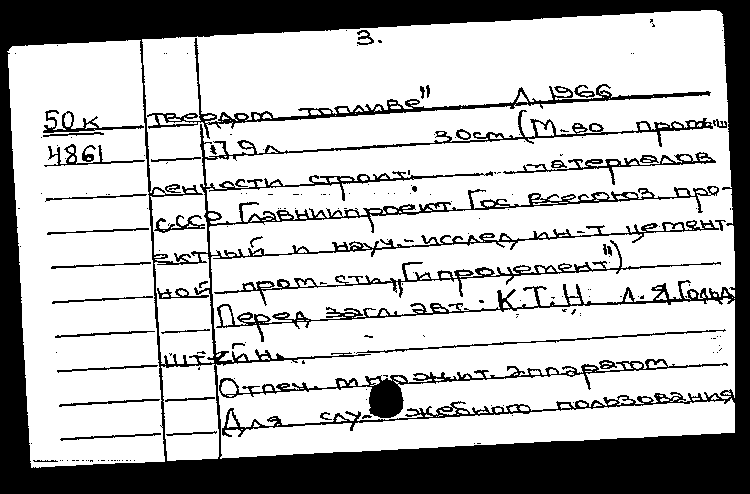 3.
50к твердом топливе" Л., 1966.
4861 11,9 л. 30 см. (М-во промыш-
ленности строит. материалов
СССР. Главниипроект. Гос. всесоюз. про-
ектный и науч.-исслед. ин-т цемент-
ной пром-сти "Гипроцемент")
Перед загл. авт.: К.Т.Н. Л.Я. Гольд-
штейн.
Отпеч. множит. аппаратом.
Для служебного пользования